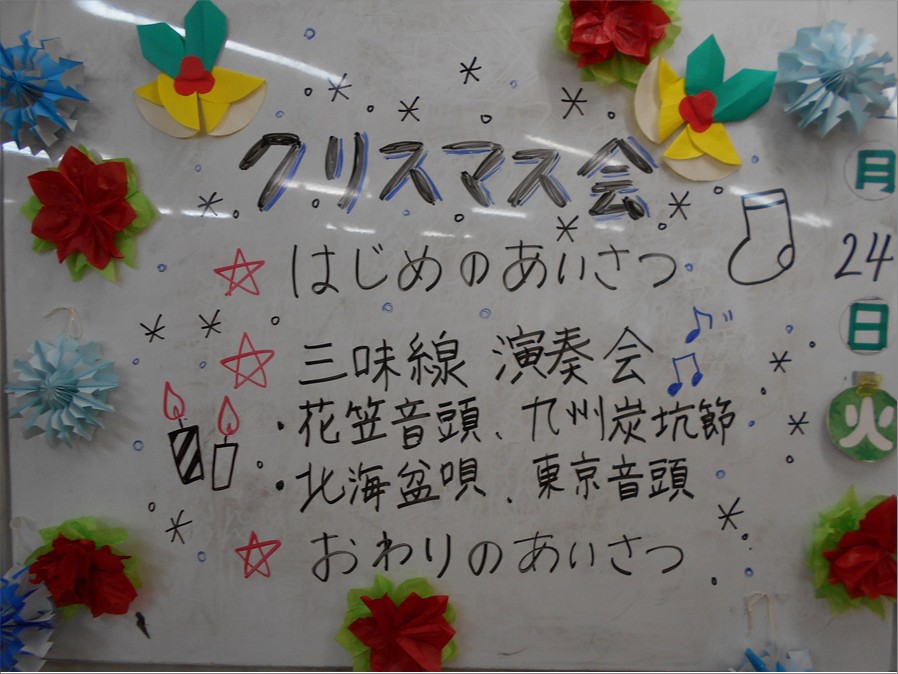 クリスマス会
はじめのあいさつ
三味線 演奏会
・花笠音頭、九州炭坑節
・北海盆唄、東京音頭
おわりのあいさつ
月
24
日
火